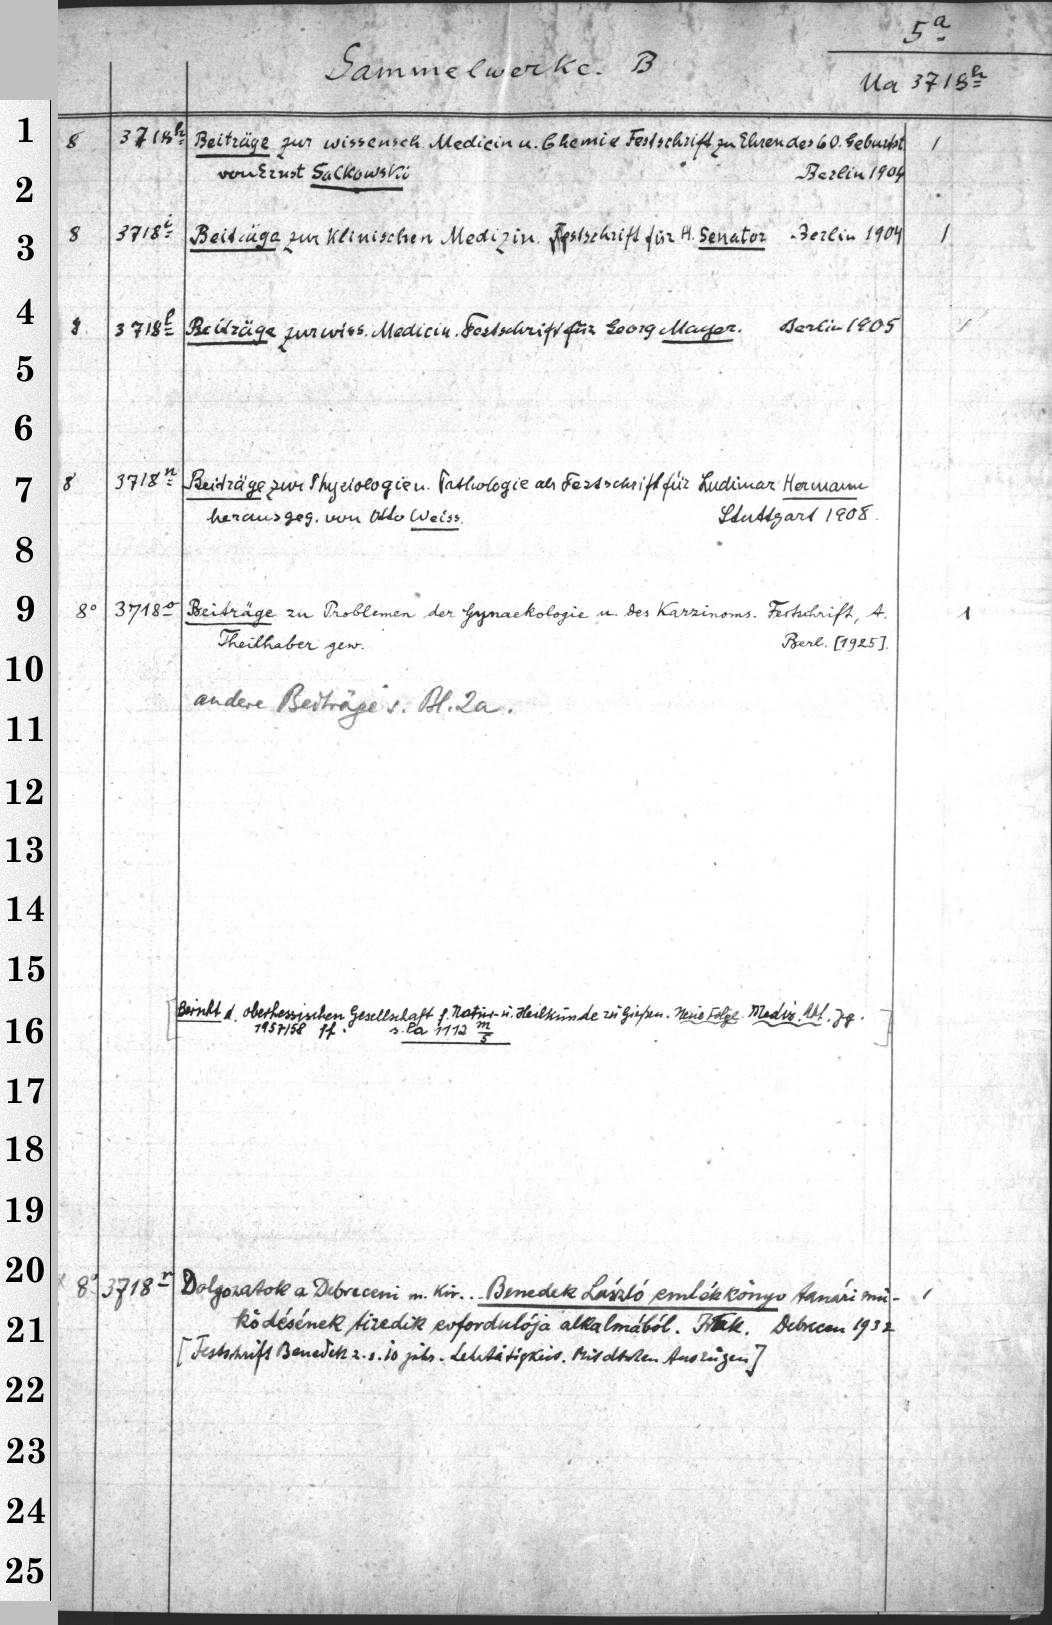 5a
Sammelwerke. B
Ua 3718h
1
8 3718h Beiträge zur wissensch. Medicin u. Chemie Festschrift zu Ehren des 60. Geburtst 1
2
von Ernst Salkowski Berlin 1904
3
8 3718i Beiträge zur klinischen Medizin. Festschrift für H. Senator Berlin 1904 1
4
8 3718l Beiträge zur wiss. Medicin. Festschrift für Georg Mayer. Berlin 1905 1
5
6
7
8 3718n Beiträge zur Physiologie u. Pathologie als Festschrift für Ludimar Hermann
herausgeg. von Otto Weiss. Stuttgart 1908.
8
9
8° 3718o Beiträge zu Problemen der Gynaekologie u. des Karzinoms. Festschrift, A. 1
Theilhaber gew. Berl. [1925].
10
andere Beiträge s. Bl. 2a.
11
12
13
14
15
[Bericht d. oberhessischen Gesellschaft f. Natur- u. Heilkunde zu Gießen. Neue Folge. Mediz. Abt. Jg.
16
1957/58 ff. s. Pa 1112 m/5 ]
17
18
19
20
8° 3718r Dolgozatok a Debreceni m. kir. .. Benedek László emlékkönyv tanári mü- 1
21
ködésének tizedik evfordulója alkalmából. Debrecen 1932
[Festschrift Benedek z. s. 10 jähr. Lehrtätigkeit. Mit dtschen Auszügen]
22
23
24
25